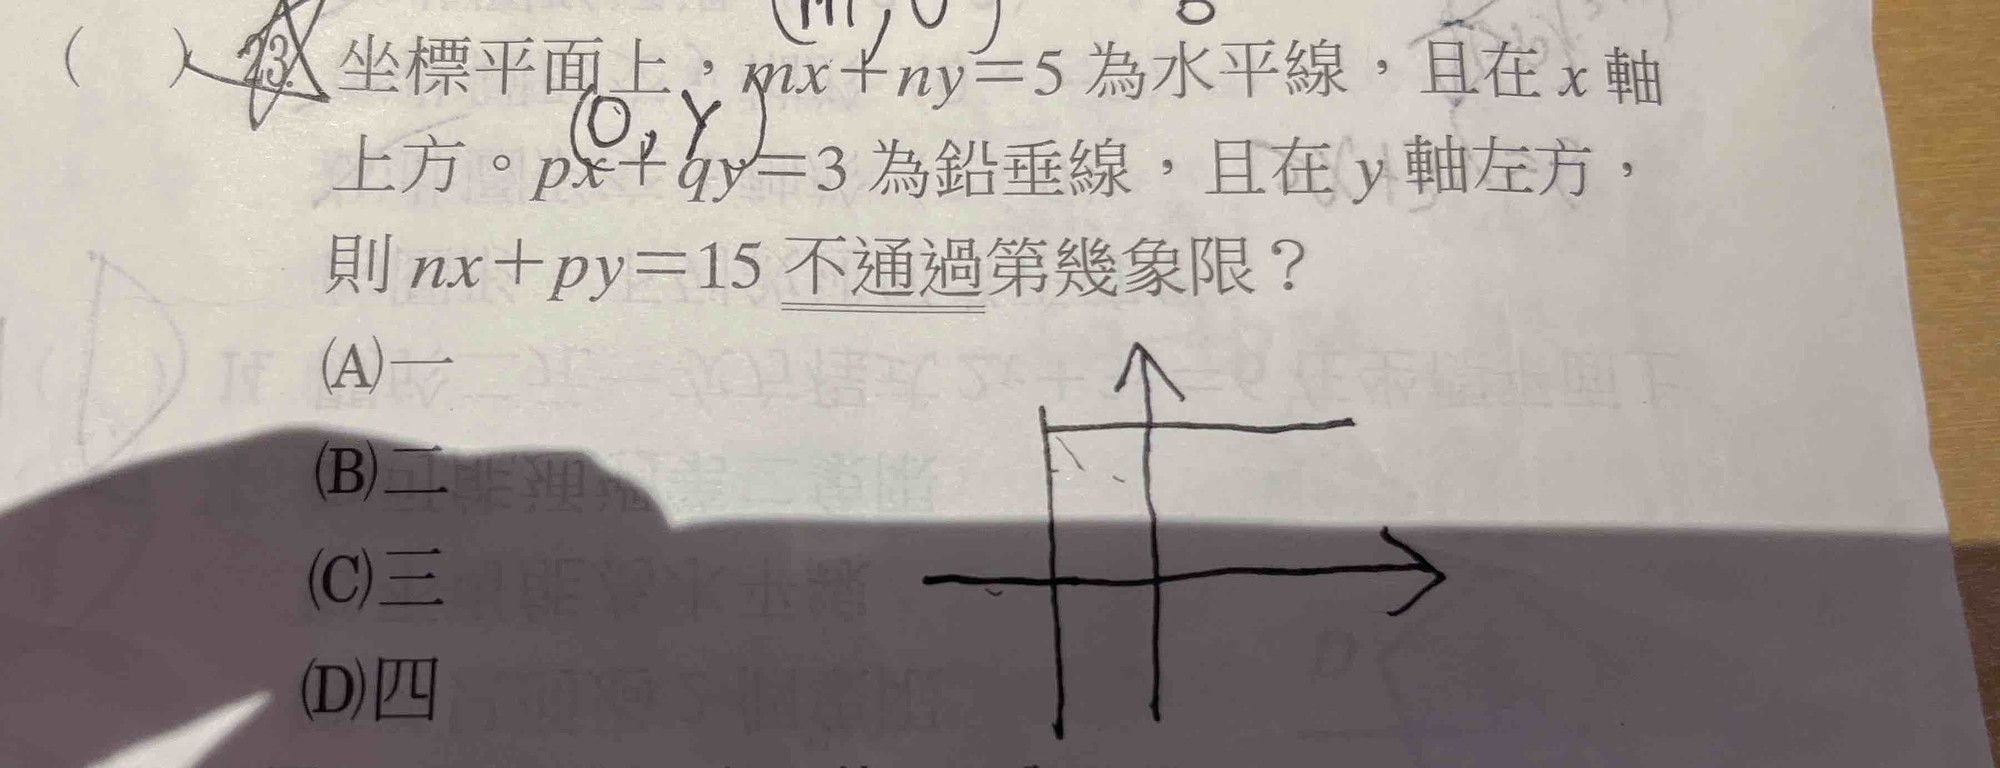 (m, 0)
( ) 23. 坐標平面上，mx＋ny＝5 為水平線，且在 x 軸
(0, y)
上方。px＋qy＝3 為鉛垂線，且在 y 軸左方，
則 nx＋py＝15 不通過第幾象限？
(A)一
(B)二
(C)三
(D)四